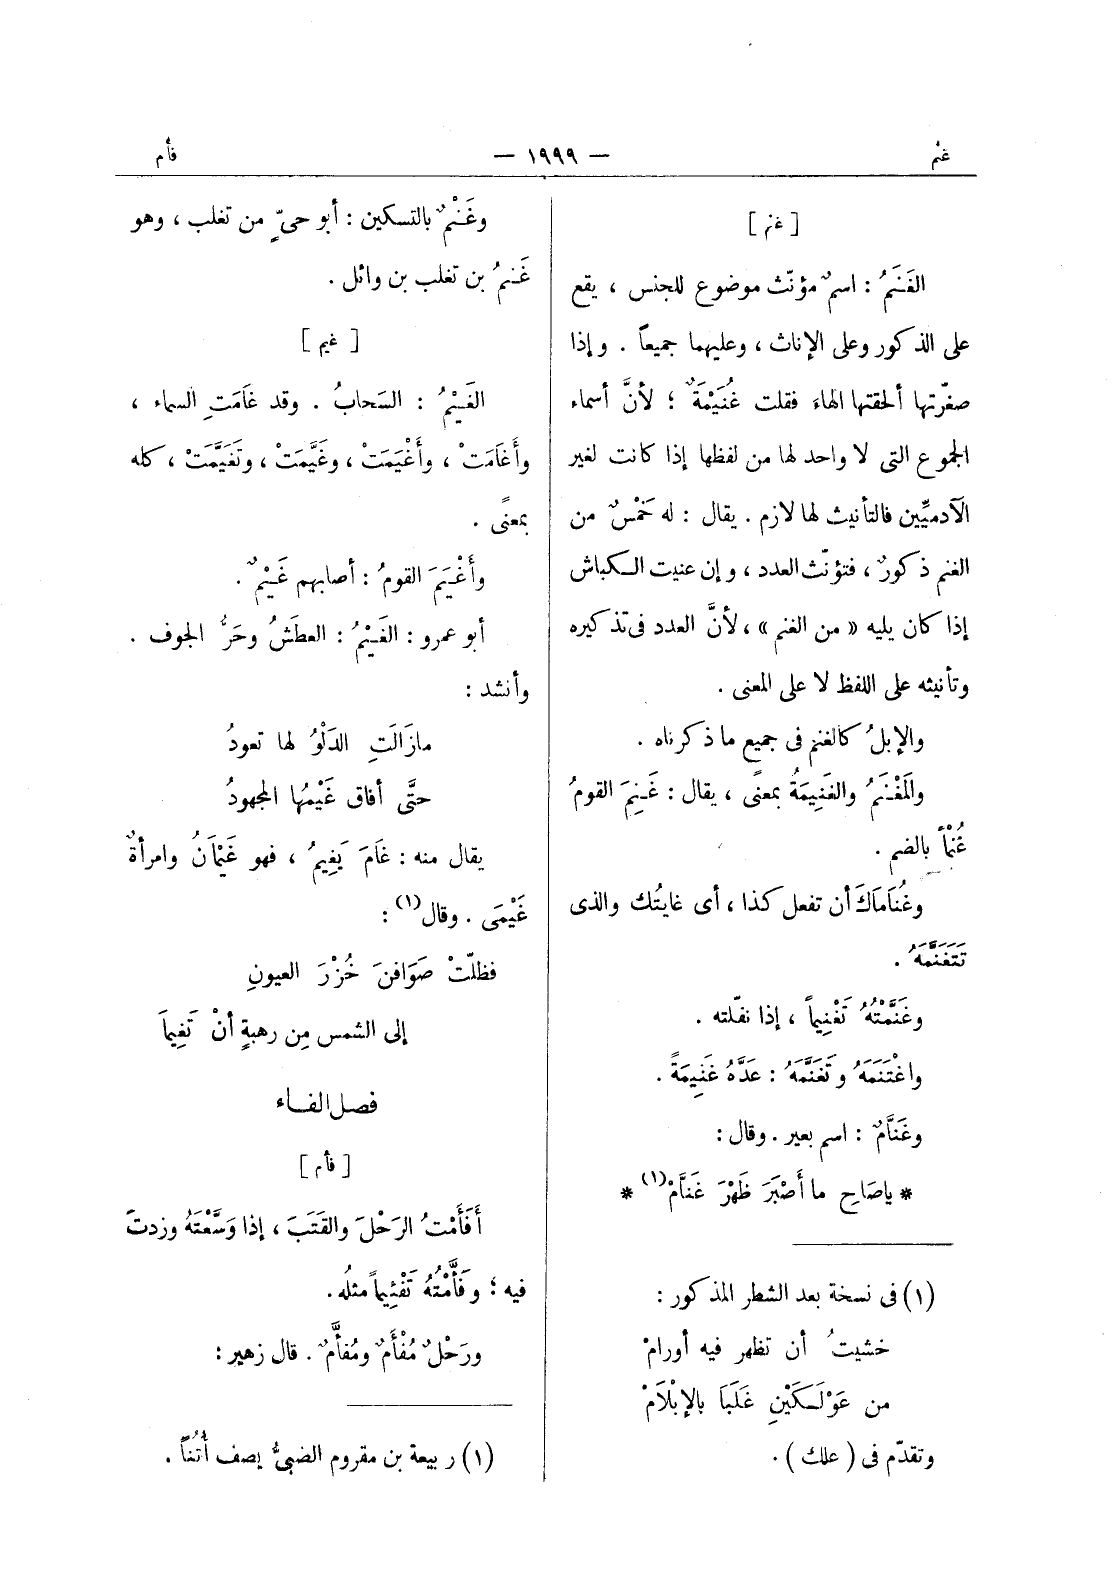 غنم
— ١٩٩٩ —
فأم
[ غنم ]
الغَنَمُ : اسمٌ مؤنّث موضوع للجنس ، يقع
على الذكور وعلى الإناث ، وعليهما جميعاً . وإذا
صغّرتها ألحقتها الهاءَ فقلت غُنَيْمَةٌ ؛ لأنَّ أسماء
الجموع التى لا واحد لها من لفظها إذا كانت لغير
الآدميِّين فالتأنيث لها لازم . يقال : له خَمْسٌ من
الغنم ذكورٌ ، فتؤنّث العدد ، وإن عنيت الكباش
إذا كان يليه « من الغنم » ، لأنَّ العدد فى تذكيره
وتأنيثه على اللفظ لا على المعنى .
والإبلُ كالغنم فى جميع ما ذكرناه .
والمَغْنَمُ والغَنِيمَةُ بمعنًى ، يقال : غَنِمَ القومُ
غُنْماً بالضم .
وغُنَامَاكَ أن تفعل كذا ، أى غايتُك والذى
تَتَغَنَّمَهُ .
وغَنَّمْتُهُ تَغْنِيماً ، إذا نفّلته .
واغْتَنَمَهُ وتَغَنَّمَهُ : عَدَّهُ غَنِيمَةً .
وغَنَّامٌ : اسم بعير . وقال :
* ياصَاحِ ما أَصْبَرَ ظَهْرَ غَنَّامْ (١) *
(١) فى نسخة بعد الشطر المذكور :
خشيتُ أن تظهر فيه أورامْ
من عَوْلَكَيْنِ غَلَبَا بالإبْلَامْ
وتقدّم فى ( علك ) .
وغَنْمٌ بالتسكين : أبو حىٍّ من تغلب ، وهو
غَنمُ بن تغلب بن وائل .
[ غيم ]
الغَيْمُ : السَحابُ . وقد غَامَتِ السماء ،
وأَغَامَتْ ، وأَغْيَمَتْ ، وغَيَّمَتْ ، وتَغَيَّمَتْ ، كله
بمعنًى .
وأَغْيَمَ القومُ : أصابهم غَيْمٌ .
أبو عمرو : الغَيْمُ : العطَشُ وحَرُّ الجوف .
وأنشد :
مازَالَتِ الدَلْوُ لها تعودُ
حتَّى أفاق غَيْمُها المجهودُ
يقال منه : غَامَ يَغِيمُ ، فهو غَيْمَانُ وامرأةٌ
غَيْمَى . وقال (١) :
فظلّتْ صَوَافنَ خُزْرَ العيونِ
إلى الشمس مِن رهبةٍ أنْ تَغِيمَا
فصل الفاء
[ فأم ]
أَفْأَمْتُ الرَحْلَ والقَتَبَ ، إذا وَسَّعْتَهُ وزدتَ
فيه ؛ وفَأَّمْتُهُ تَفْئِيماً مثلُه .
ورَحْلٌ مُفْأَمٌ ومُفأَّمٌ . قال زهير :
(١) ربيعة بن مقروم الضبىُّ يصف أُتُناً .